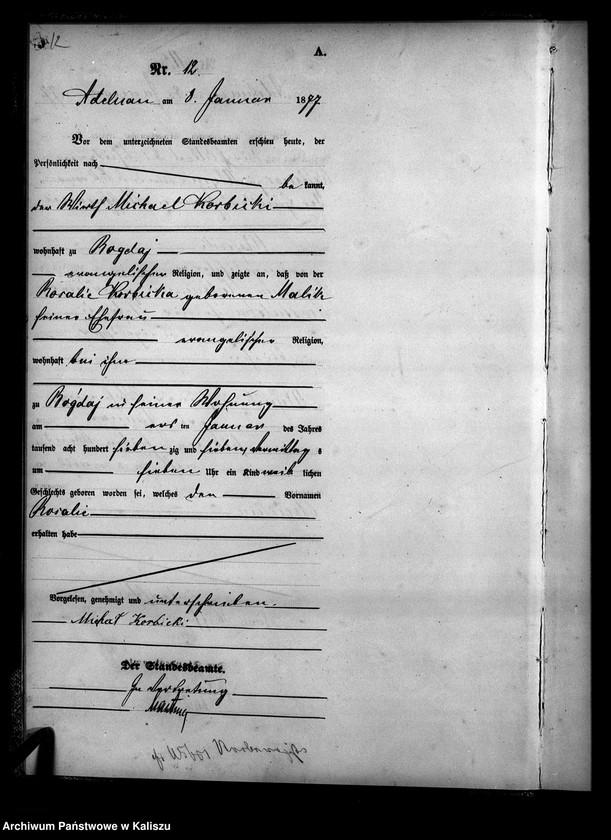 12
A.
Nr. 12.
Adelnau am 8. Januar 1877
Vor dem unterzeichneten Standesbeamten erschien heute, der
Persönlichkeit nach
be kannt,
der Wirth Michael Korbicki
wohnhaft zu Bogdaj
evangelischer Religion, und zeigte an, daß von der
Rosalie Korbicka geborenen Malik
seiner Ehefrau
evangelischer Religion,
wohnhaft bei ihm
zu Bogdaj in seiner Wohnung
am ersten Januar des Jahres
tausend acht hundert sieben zig und sieben, Vormittag s
um sieben Uhr ein Kind weib lichen
Geschlechts geboren worden sei, welches den Vornamen
Rosalie
erhalten habe
Vorgelesen, genehmigt und unterschrieben.
Michał Korbicki
Der Standesbeamte.
In Vertretung
Archiwum Państwowe w Kaliszu